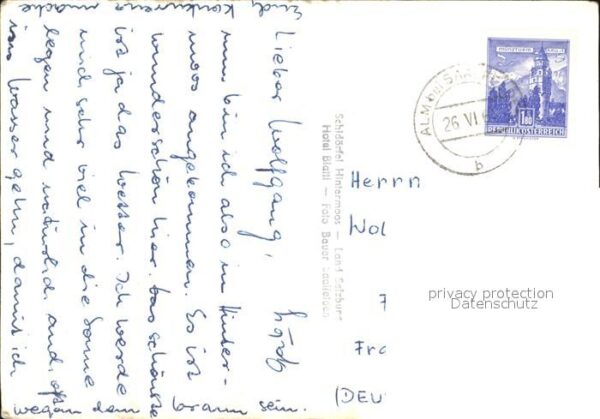 Lieber Wolfgang,
nun bin ich also in Hinter-
moos angekommen. Es ist
wunderschön hier. Das schönste
ist ja das Wasser. Ich werde
mich sehr viel in die Sonne
legen und natürlich auch oft
ins Wasser gehn, damit ich
Euch Konkurrenz mache
wegen dem braun sein.
Schidörfel Hintermoos — Land Salzburg
Hotel Foto Bauer Saalfelden
MÜNZTURM HALL
S
1.80
REPUBLIK ÖSTERREICH
ALM BEI SAAL
26 VI
b
Herrn
Wol
Fra
(DEU
privacy protection
Datenschutz